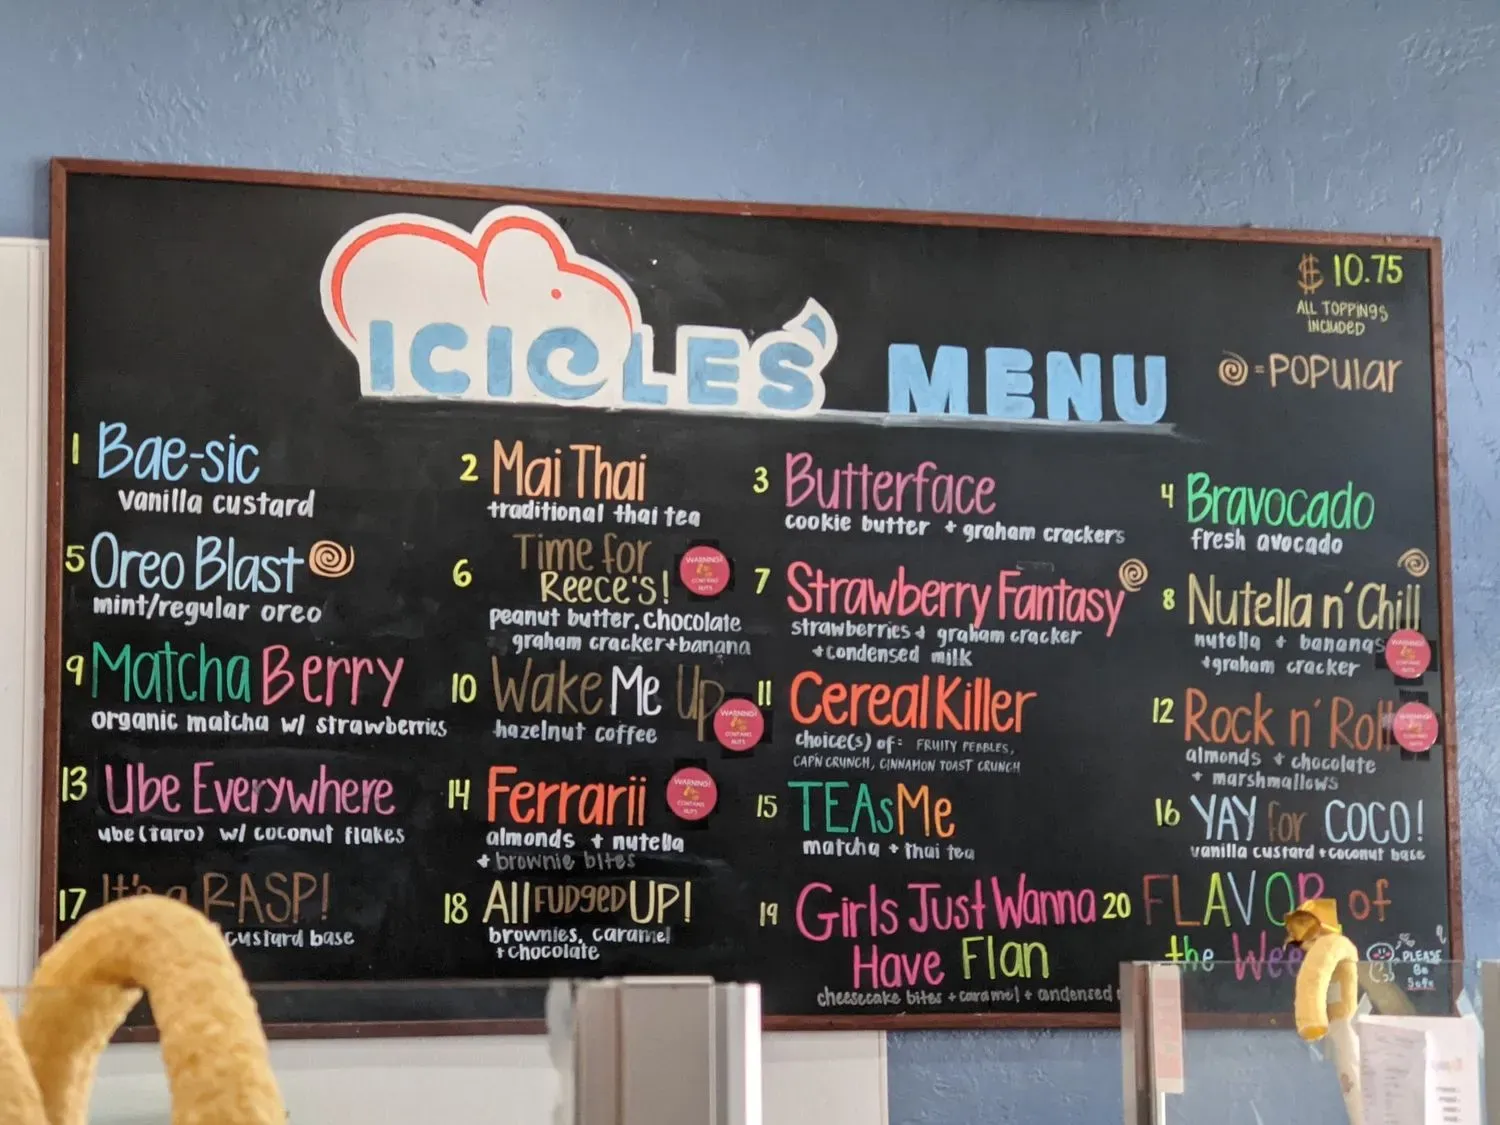 ICICLES MENU
$ 10.75
ALL TOPPINGS
INCLUDED
= POPULAR
1 Bae-sic
vanilla custard
2 Mai Thai
traditional thai tea
3 Butterface
cookie butter + graham crackers
4 Bravocado
fresh avocado
5 Oreo Blast
mint/regular oreo
6 Time for
Reece's!
peanut butter, chocolate
graham cracker + banana
WARNING!
CONTAINS
NUTS
7 Strawberry Fantasy
strawberries + graham cracker
+ condensed milk
8 Nutella n' Chill
nutella + bananas
+ graham cracker
WARNING!
CONTAINS
NUTS
9 Matcha Berry
organic matcha w/ strawberries
10 Wake Me Up
hazelnut coffee
WARNING!
CONTAINS
NUTS
11 Cereal Killer
choice(s) of: FRUITY PEBBLES,
CAP'N CRUNCH, CINNAMON TOAST CRUNCH
12 Rock n' Roll
almonds + chocolate
+ marshmallows
WARNING!
CONTAINS
NUTS
13 Ube Everywhere
ube (taro) w/ coconut flakes
14 Ferrarii
almonds + nutella
+ brownie bites
WARNING!
CONTAINS
NUTS
15 TEAs Me
matcha + thai tea
16 YAY for COCO!
vanilla custard + coconut base
17 It's a RASP!
custard base
18 All FUDGED UP!
brownies, caramel
+ chocolate
19 Girls Just Wanna
Have Flan
cheesecake bites + caramel + condensed
20 FLAVOR of
the Wee
PLEASE
Be
Safe